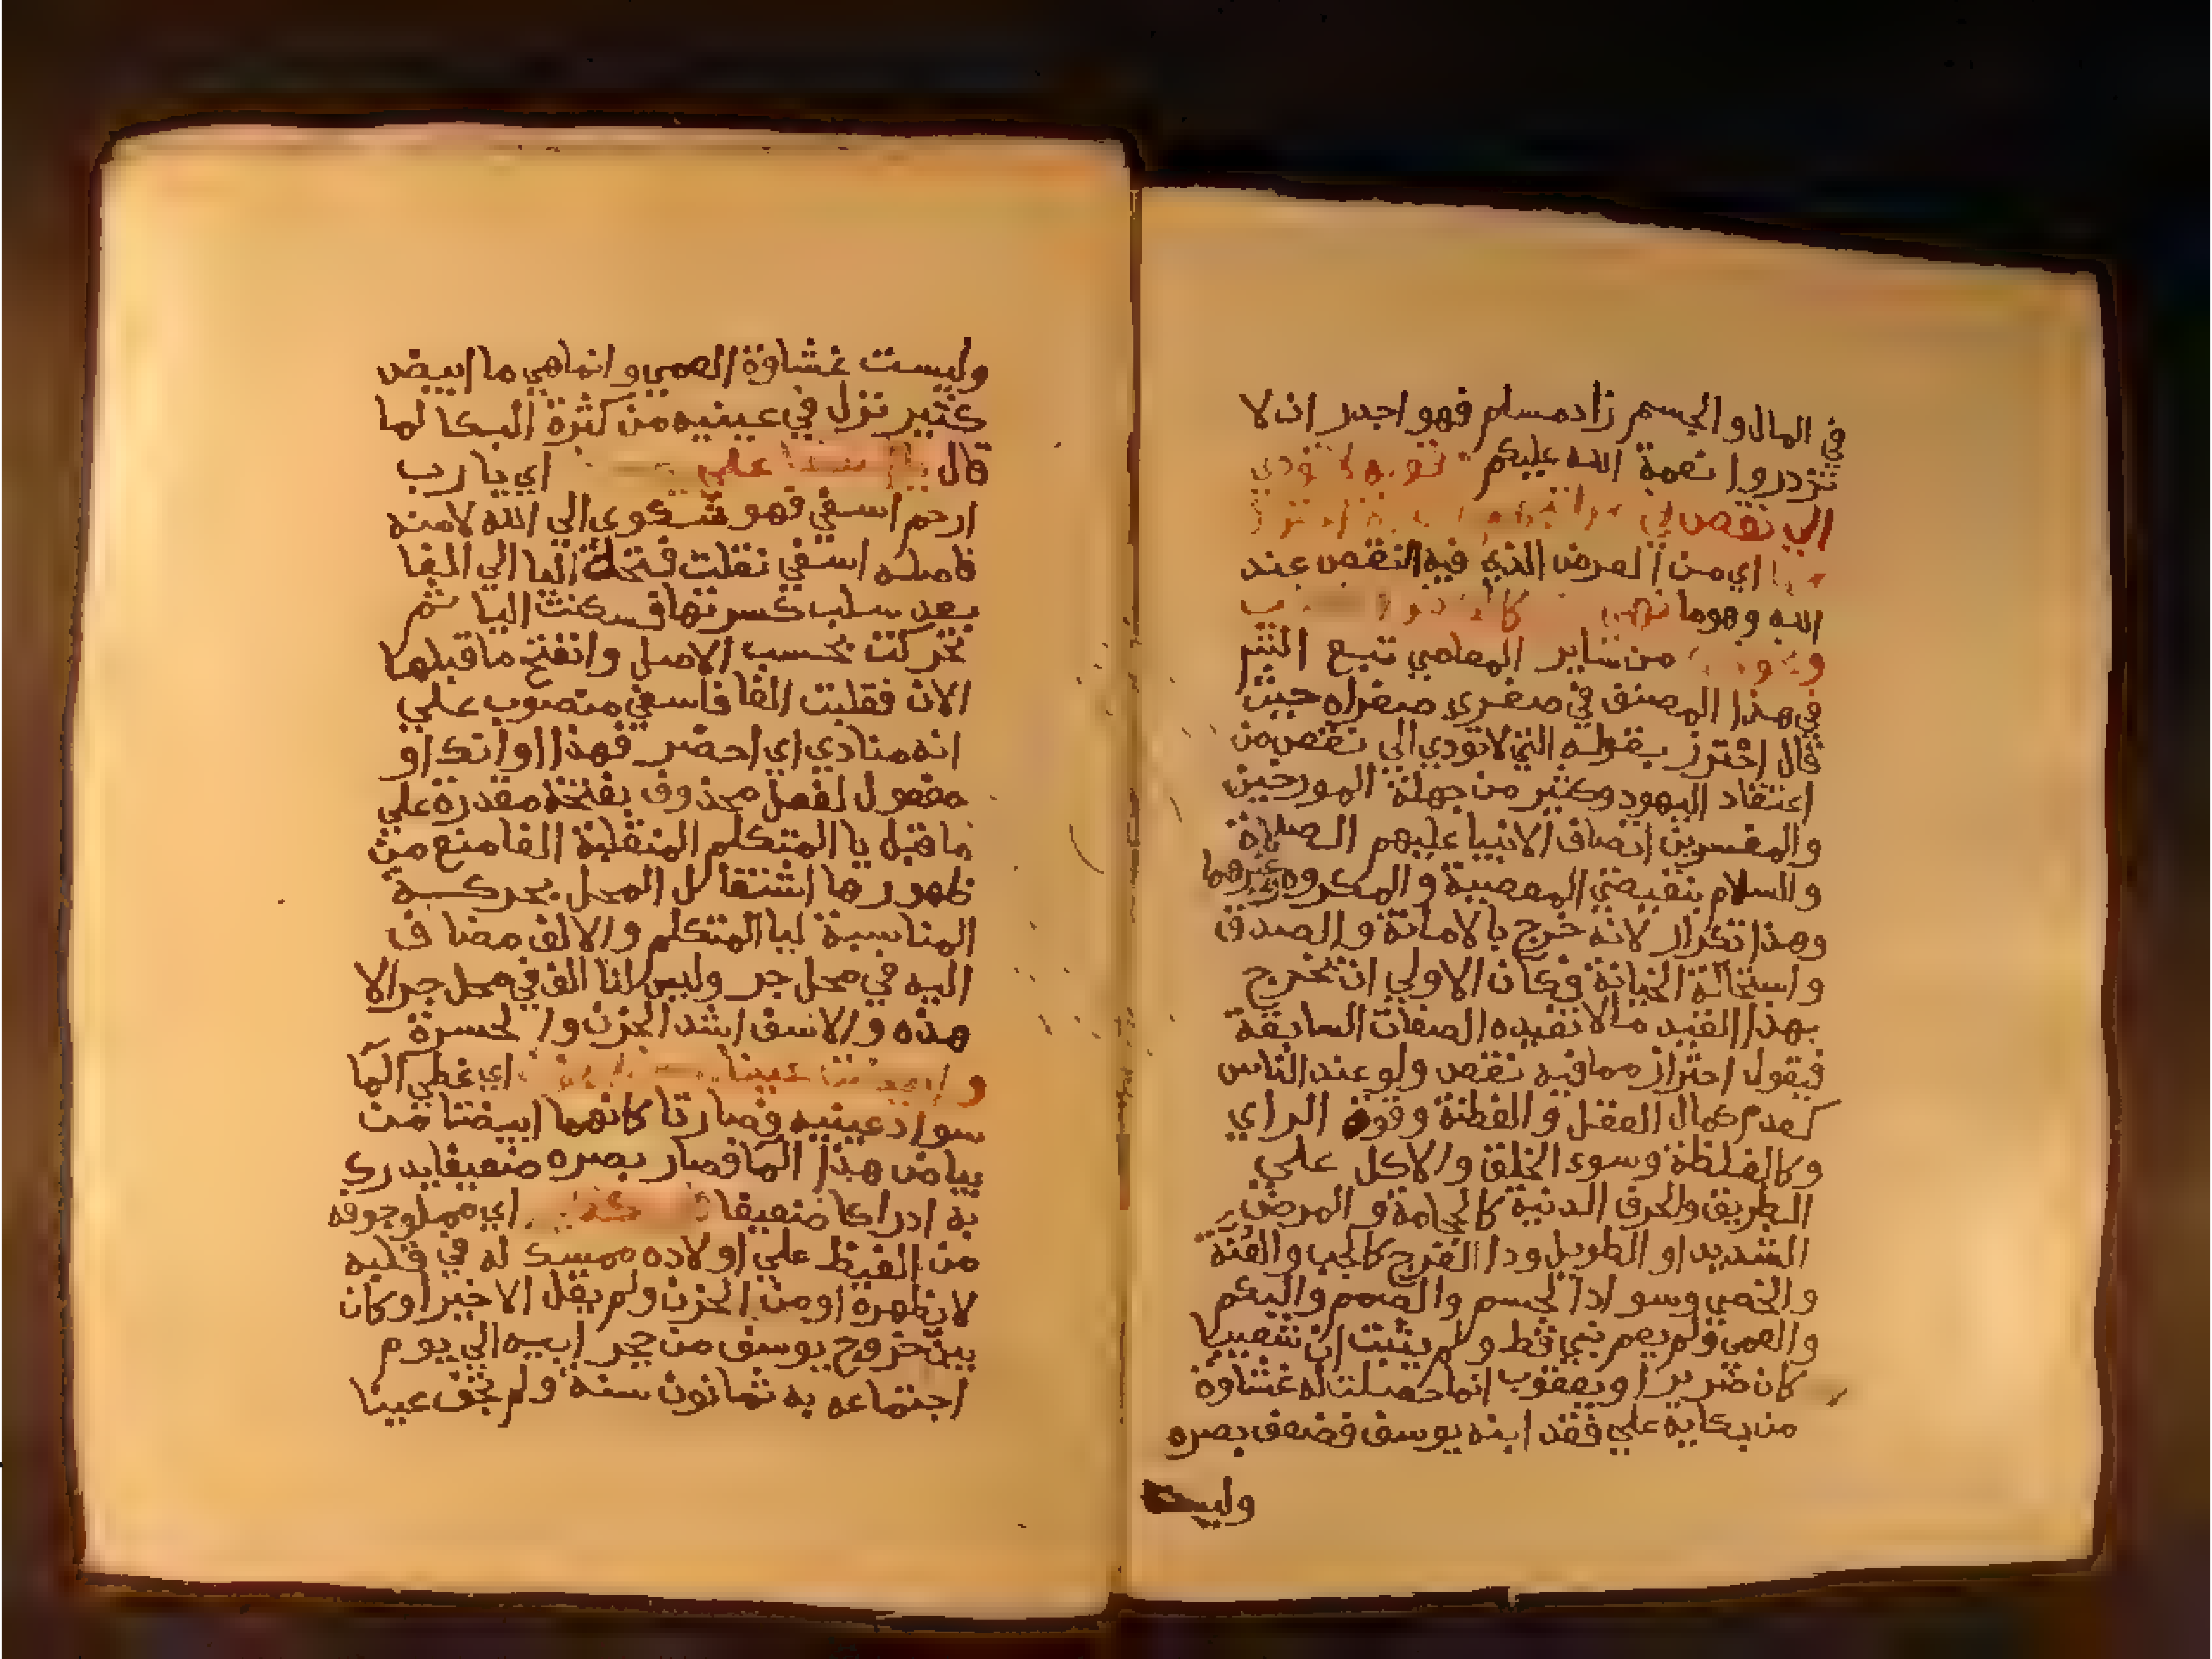 في المال والجسم زاد مسلم فهو اجدر ان لا
تزدروا نعمة الله عليكم لا تودي
الي نقص في
اي من العرض الذي فيه النقص عند
الله وهو ما نهي
من ساير المعاصي تبع
في هذا المصنف في صغري صغراه حيث
قال احترز بقوله التي لا تودي الي نقص من
اعتقاد اليهود وكثير من جهلة المورخين
والمفسرين اتصاف الانبيا عليهم الصلاة
والسلام بنقيضي المعصية والمكروه وغيرهما
وهذا تكرار لانه خرج بالامانة والصدق
واستحالة الخيانة فكان الاولي ان يخرج
بهذا القيد مالا تفيده الصفات السابقة
فيقول احتراز مما فيه نقص ولو عند الناس
كعدم كمال العقل والفطنة وقوة الراي
وكالغلظة وسوء الخلق والاكل علي
الطريق والحرف الدنية كالحجامة والمرض
الشديد او الطويل ودا الفرج كالجب والعنة
والخصي وسواد الجسم والصمم والبكم
والعمي ولم يعم نبي قط ولم يثبت ان شعيبا
كان ضريرا ويعقوب انما حصلت له غشاوة
من بكايه علي فقد ابنه يوسف فضعف بصره
وليست
وليست غشاوة العمي وانما هي ما ابيض
كثير نزل في عينيه من كثرة البكا لما
قال يا اسفا علي اي يا رب
ارحم اسفي فهو شكوي الي الله لا منه
فاصله اسفي نقلت فتحة اليا الي الفا
بعد سلب كسرتها فسكنت اليا ثم
تحركت بحسب الاصل وانفتح ما قبلها
الان فقلبت الفا فاسفي منصوب علي
انه منادي اي احضر فهذا اوانك او
مفعول لفعل محذوف بفتحة مقدرة علي
ما قبل يا المتكلم المنقلبة الفا منع من
ظهورها اشتغال المحل بحركة
المناسبة ليا المتكلم والالف مضاف
اليه في محل جر وليس لنا الف في محل جر الا
هذه والاسف اشد الحزن والحسرة
وابيضت عيناه اي غطي الما
سواد عينيه فصارتا كانهما ابيضتا من
بياض هذا الما فصار بصره ضعيفا يدرك
به ادراكا ضعيفا اي مملو جوفه
من الغيظ علي اولاده ممسك له في قلبه
لا يظهره او من الحزن ولم يقل الا خيرا وكان
بين خروج يوسف من حجر ابيه الي يوم
اجتماعه به ثمانون سنة ولم تجف عينا